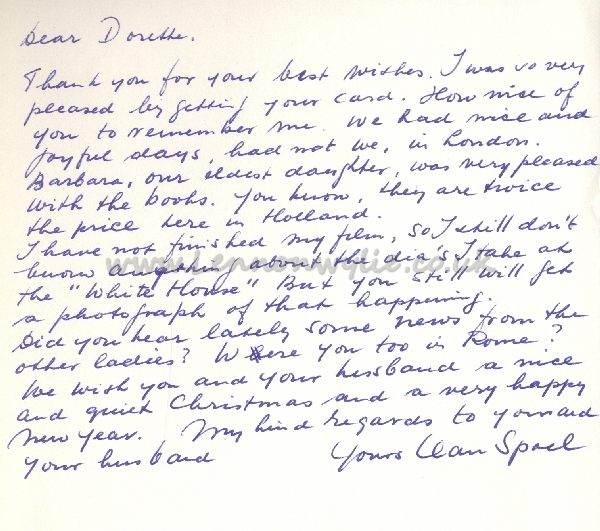 Dear Dorette.
Thank you for your best wishes. I was so very
pleased by getting your card. How nice of
you to remember me. We had nice and
joyful days, had not we, in London.
Barbara, our eldest daughter, was very pleased
with the books. You know, they are twice
the price here in Holland.
I have not finished my film, so I still don't
know anything about the dia's I take at
the "White House" But you still will get
a photograph of that happening.
Did you hear lately some news from the
other ladies? Were you too in Rome?
We wish you and your husband a nice
and quiet Christmas and a very happy
New Year. My kind regards to you and
your husband Yours